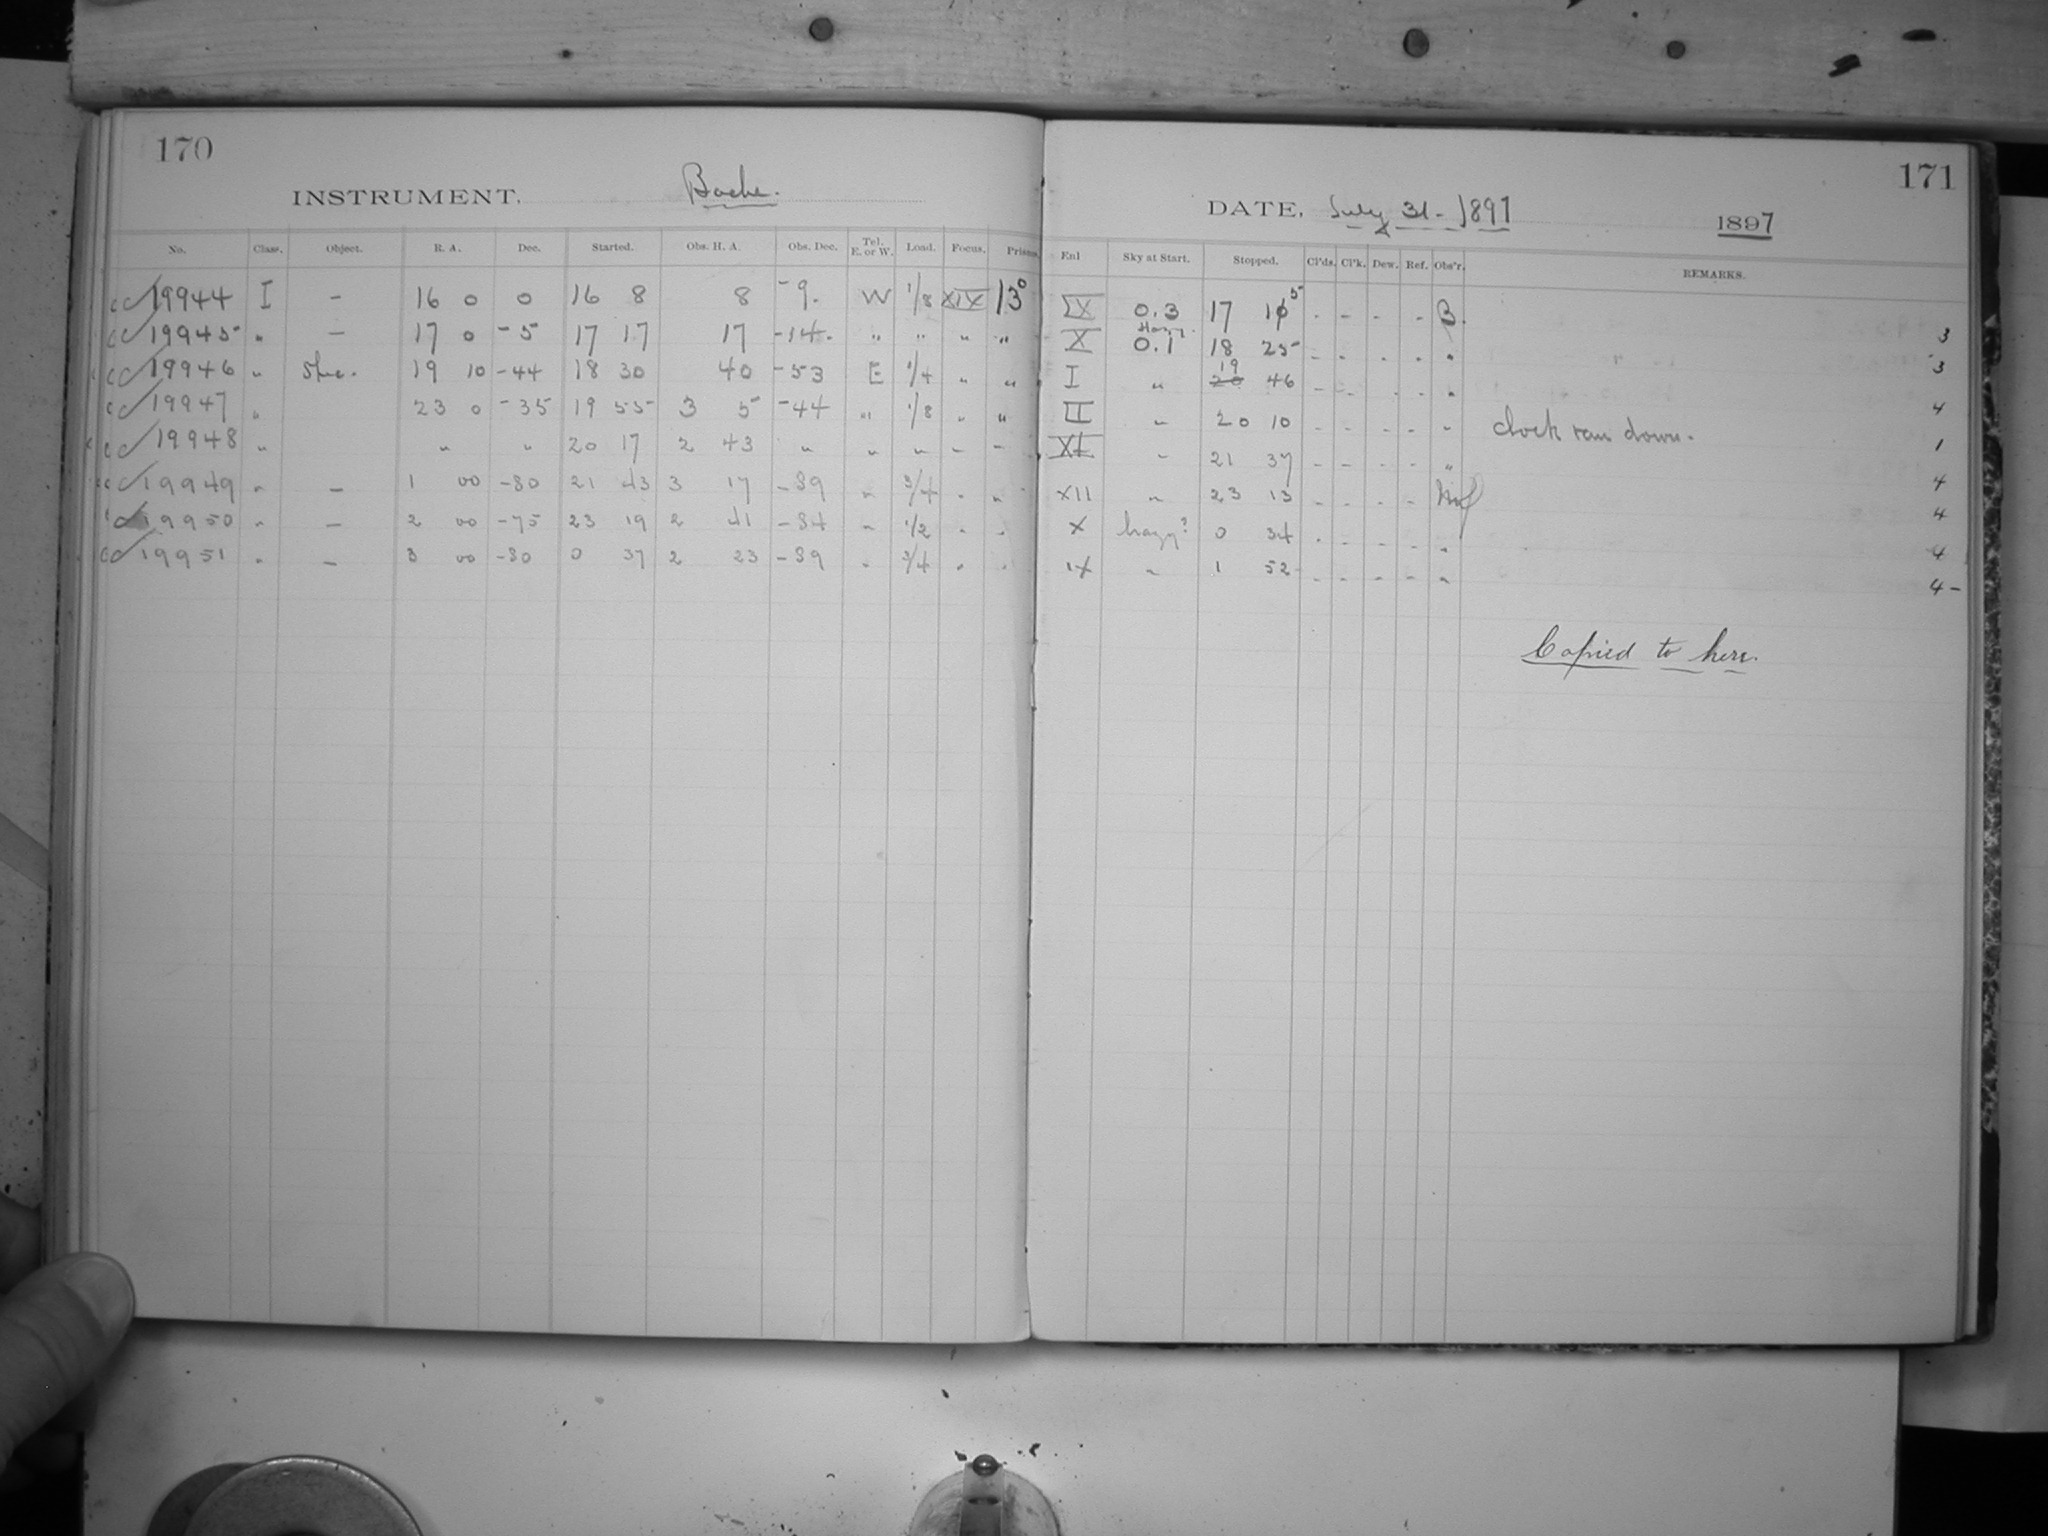 170
171
INSTRUMENT. Bache.
DATE, July 31 - 1897 1897
No. Class. Object. R. A. Dec. Started. Obs. H. A. Obs. Dec. Tel. E. or W. Load. Focus. Prisms. Enl Sky at Start. Stopped. Cl'ds. Cl'k. Dew. Ref. Obs'r. REMARKS.
cc 19944 I – 16 0 0 16 8 8 -9. W 1/8 XIX 13° IX 0.3 17 15 . - - - B. 3
cc 19945 " – 17 0 -5 17 17 17 -14. " " " " X Hazy. 0.1 18 25 - - - - " 3
cc 19946 " Spec. 19 10 -44 18 30 40 -53 E 1/4 " " I " 19 46 - - - - " 4
cc 19947 " 23 0 -35 19 55 3 5 -44 " 1/8 " " " 20 10 - - - - " clock ran down. 1
cc 19948 " " " 20 17 2 43 " " " - - XI " 21 37 - - - - " 4
cc 19949 " – 1 00 -80 21 43 3 17 -89 " 3/4 " " XII " 23 13 - - - - 4
cc 19950 " – 2 00 -75 23 19 2 41 -84 " 1/2 " " X hazy? 0 34 - - - - " 4
cc 19951 " – 3 00 -80 0 37 2 23 -89 " 3/4 " " IX " 1 52 - - - - " 4 -
Copied to here.